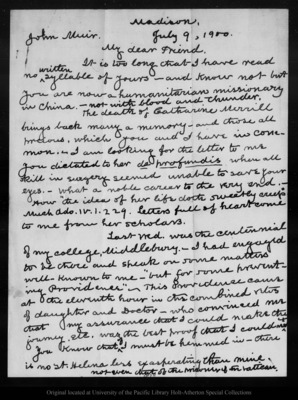 Madison,
July 9, 1900.
John Muir.
My dear Friend.
It is too long that I have read
no written syllable of yours — and know not but
you are now a humanitarian missionary
in China — not with blood and thunder.
The death of Catharine Merrill
brings back many a memory — and those all
precious, which you and I have in com-
mon. — I am looking for the letter to me
you dictated to her de profundis when all
skill in surgery seemed unable to save your
eyes. — What a noble career to the very end. —
How the idea of her life doth sweetly creep
Much Ado. IV. 1. 229. Letters full of heart come
to me from her scholars.
Last Wed. was the centennial
of my college, Middlebury. — I had engaged
to be there and speak on some matters
well-known to me — "but for some prevent-
ing Providence". This Providence came
at the eleventh hour in the combined
of daughter and Doctor — who convinced me
that my assurance that I could make the
journey etc. was the best proof that I could not.
You know that I must be hemmed in — there
is no St. Helena less exasperating than mine.
not even that of the
Original located at University of the Pacific Library Holt-Atherton Special Collections